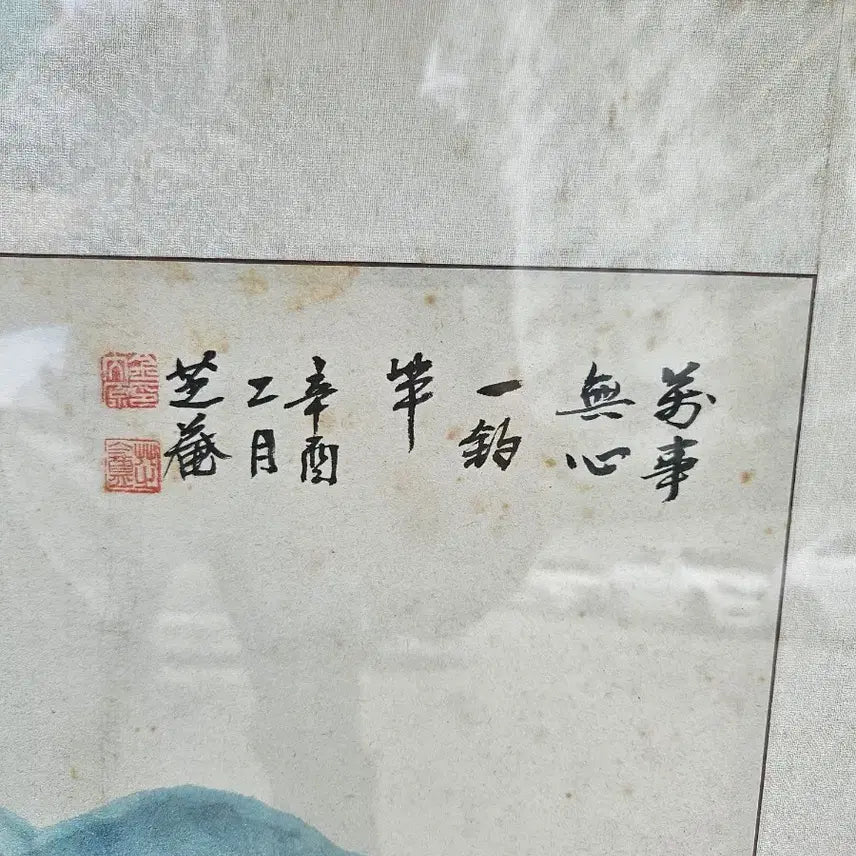 萬事
無心
一釣
竿
辛酉
月
芝菴